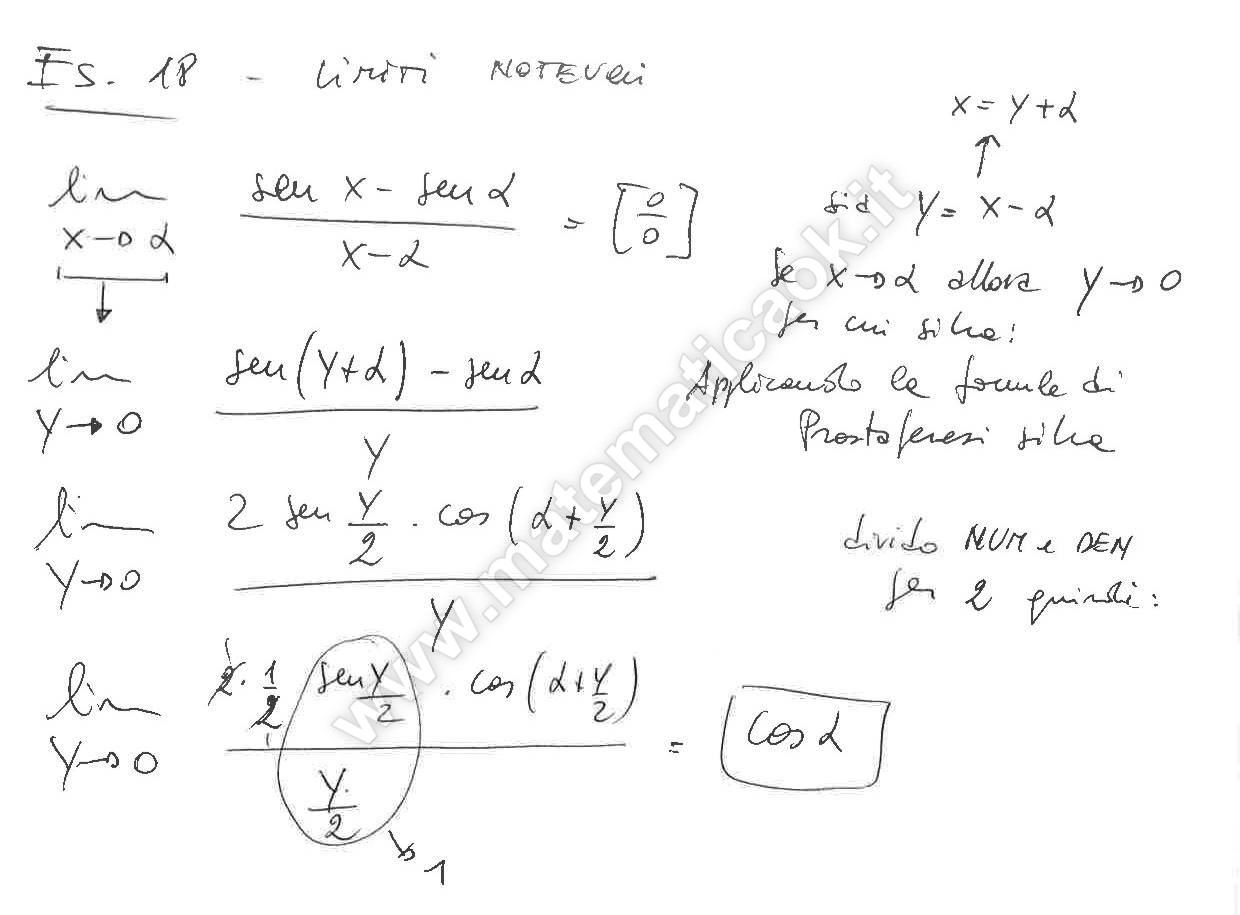 ES. 18 - LIMITI NOTEVOLI
lim x→α (sen x - sen α)/(x - α) = [0/0]
x = y + α
↑
sia y = x - α
se x→α allora y→0
per cui si ha:
lim y→0 (sen(y+α) - sen α)/y
Applicando le formule di
Prostaferesi si ha
lim y→0 (2 sen y/2 · cos(α + y/2))/y
divido NUM e DEN
per 2 quindi:
lim y→0 (2 · 1/2 sen y/2 · cos(α + y/2))/(y/2) = cos α
1
www.matematicaok.it